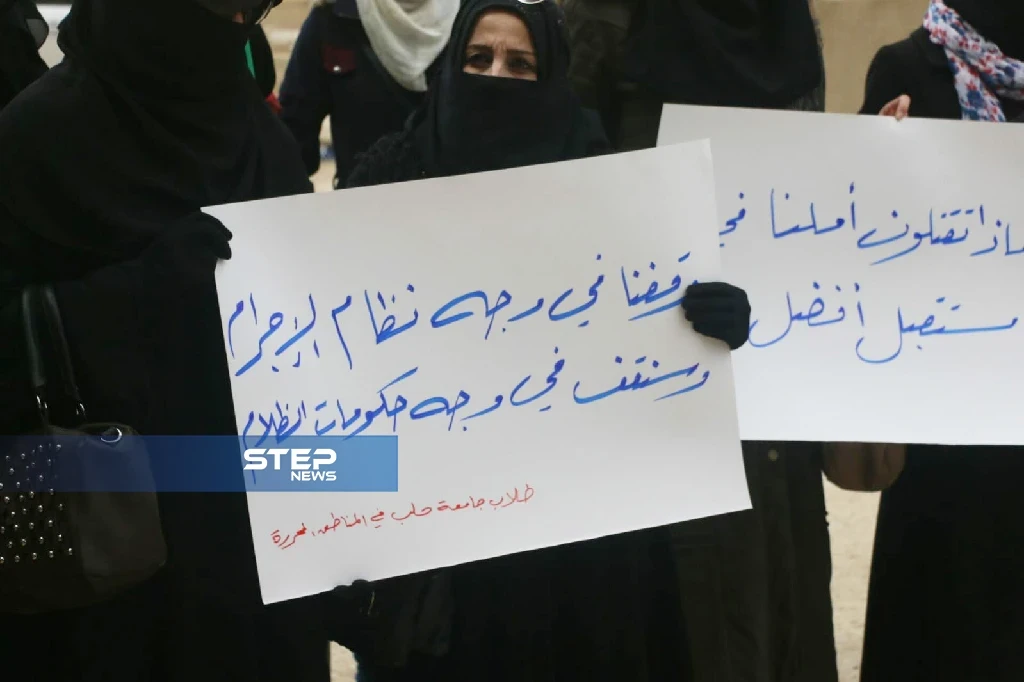 وقفنا في وجه نظام الإجرام
وسنقف في وجه حكومات الظلام
طلاب جامعة حلب في المناطق المحررة
تقتلون أملنا في
مستقبل أفضل
STEP
NEWS